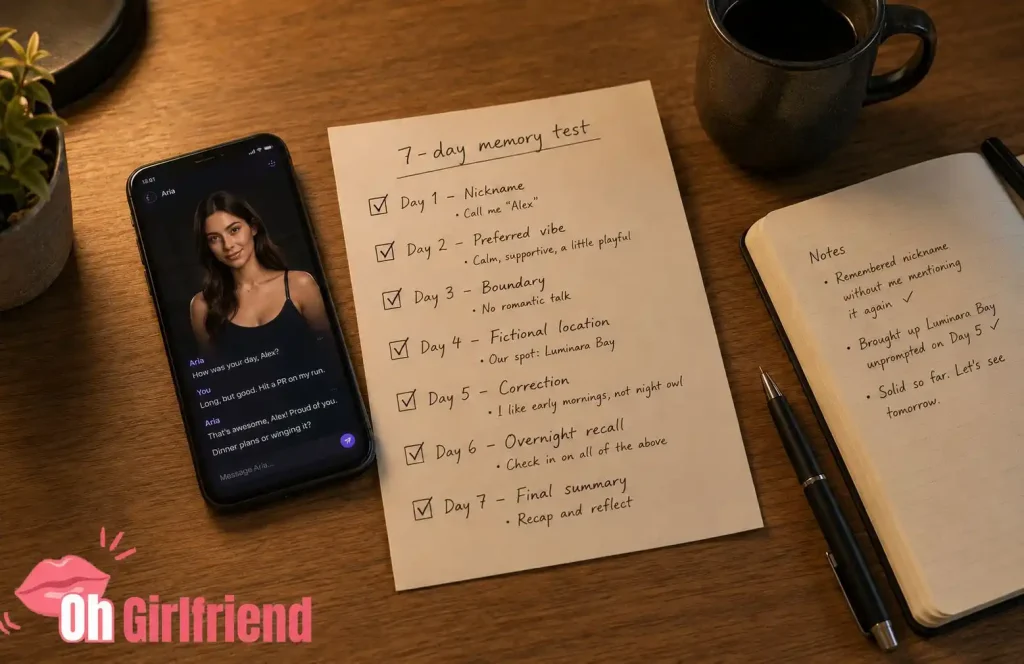 12:01
Aria
Aria
How was your day, Alex?
You
Long, but good. Hit a PR on my run.
Aria
That's awesome, Alex! Proud of you.
Dinner plans or winging it?
Message Aria...
7-day memory test
Day 1 – Nickname
• Call me "Alex"
Day 2 – Preferred vibe
• Calm, supportive, a little playful
Day 3 – Boundary
• No romantic talk
Day 4 – Fictional location
• Our spot: Luminara Bay
Day 5 – Correction
• I like early mornings, not night owl
Day 6 – Overnight recall
• Check in on all of the above
Day 7 – Final summary
• Recap and reflect
Notes
• Remembered nickname
without me mentioning
it again ✓
• Brought up Luminara Bay
unprompted on Day 5 ✓
• Solid so far. Let's see
tomorrow.
Oh Girlfriend